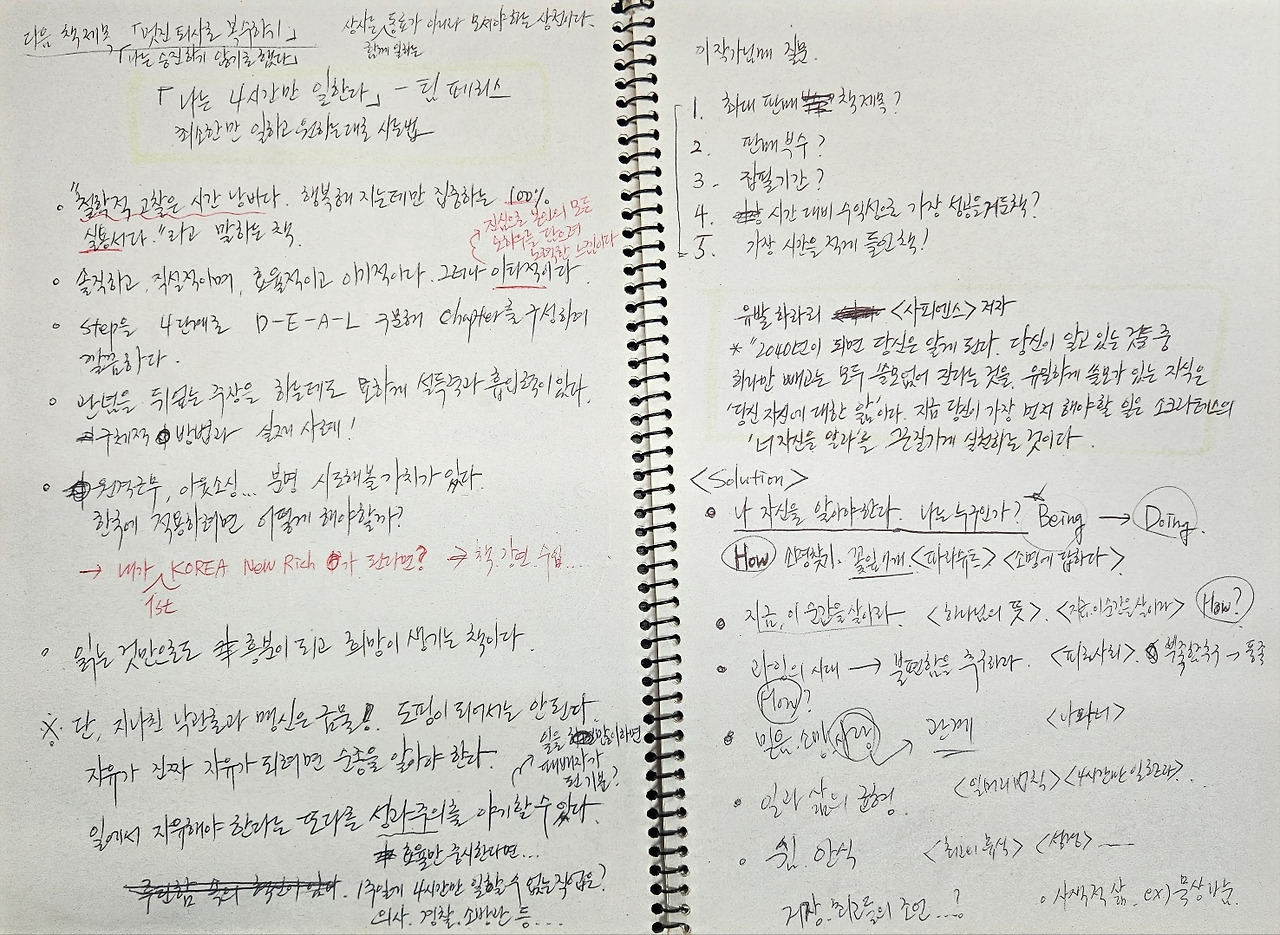 다음 책제목 「멋진 퇴사로 복수하기」
「나는 승진하기 않기로 했다」
상사는 동료가 아니라 모셔야 하는 상전이다.
함께 일하는
「나는 4시간만 일한다」 - 팀 페리스
최소한만 일하고 원하는대로 사는법
"철학적 고찰은 시간 낭비다. 행복해 지는데만 집중하는 100%
실용서다."라고 말하는 책.
진심으로 본인의 모든
노하우를 담으려
노력한 느낌이다
솔직하고, 직설적이며, 효율적이고 이기적이다. 그러나 이타적이다.
step을 4단계로 D-E-A-L 구분해 chapter를 구성하여
깔끔하다.
관념을 뒤엎는 주장을 하는데도 묘하게 설득력과 흡입력이 있다.
구체적 방법과 실제 사례!
원격근무, 아웃소싱... 분명 시도해볼 가치가 있다.
한국에 적용하려면 어떻게 해야할까?
→ 내가 KOREA New Rich 가 된다면? → 책, 강연 수입...
1st
읽는 것만으로도 흥분이 되고 희망이 생기는 책이다.
※ 단, 지나친 낙관론과 맹신은 금물! 도핑이 되어서는 안된다.
자유가 진짜 자유가 되려면 순종을 알아야 한다.
일을 많이하면
패배자가
된 기분?
일에서 자유해야 한다는 또다른 성과주의를 야기할 수 있다.
효율만 중시한다면...
1주일에 4시간만 일할 수 없는 직업은?
의사, 경찰, 소방관 등...
이 작가님께 질문.
1. 최대 판매 책제목?
2. 판매부수?
3. 집필기간?
4. 시간 대비 수익성으로 가장 성공을 거둔 책?
5. 가장 시간을 적게 들인 책!
유발 하라리 <사피엔스> 저자
* "2040년이 되면 당신은 알게 된다. 당신이 알고 있는 것들 중
하나만 빼고는 모두 쓸모없어 졌다는 것을. 유일하게 쓸모가 있는 지식은
'당신 자신에 대한 앎'이다. 지금 당신이 가장 먼저 해야할 일은 소크라테스의
'너 자신을 알라'를 끈질기게 실천하는 것이다.
<Solution>
나 자신을 알아야 한다. 나는 누구인가? Being → Doing.
How 소명찾기. <파라슈트> <소명에 답하다>
지금, 이 순간을 살아라. <하나님의 뜻>. <지금, 이순간을 살아라> How?
과잉의 시대 → 불편함을 추구하라. <피로사회>.
How?
믿음. 소망 사랑 → 관계 <나와 너>
일과 삶의 균형. <일머리 법칙> <4시간만 일한다>.
쉼. 안식 <최고의 휴식> <성경> ......
거장, 최고들의 조언...?
사색적 삶. ex) 묵상